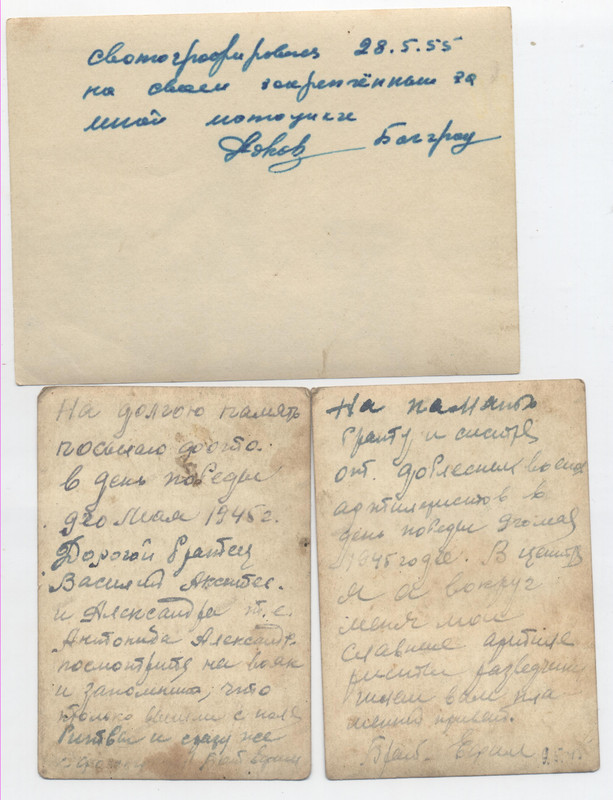 сфотографировался 28.5.55
на своем закреплённым за
мной мотоцикле
Боград
На долгою память
посылаю фото.
в день победы
9го Мая 1945 г.
Дорогой братец
Василий
и Александра т.е.
Антонида Александр.
посмотрите на вояк
и запомните, что
только вышли с поля
битвы и сразу же
На память
брату и систре
от. доблесних военн
артилеристов в
день победы 9го мая
1945 годе. В центре
я а вокруг
меня мои
славные артиле
ристы разведчики
шлем вам пла
менный привет.
Брат Ефим